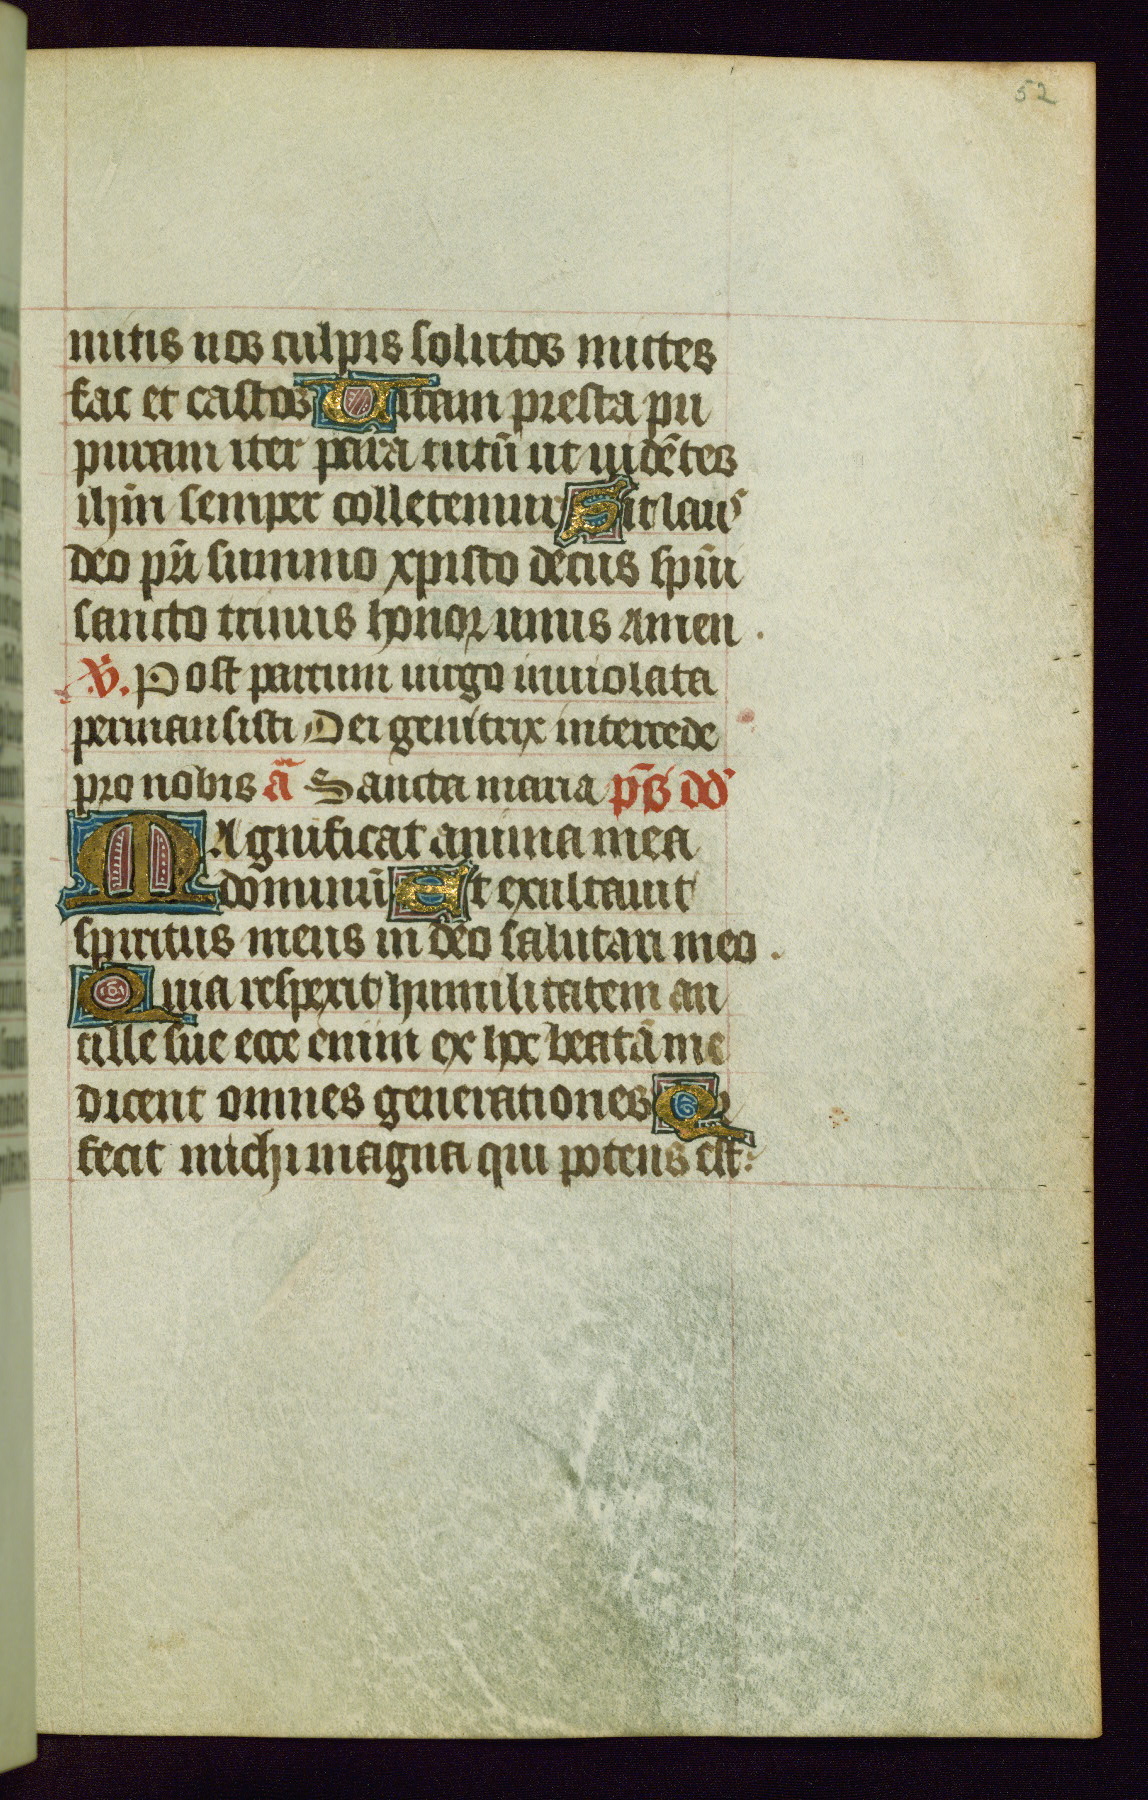 52
mitis nos culpis solutos mittes
fac et castos Uitam presta pu
puram iter para tutū ut uidētes
ihm̄ semper colletemur Sit laus
deo pr̄i summo xpisto decus spūi
sancto trinus honor unus Amen .
V̄. Post partum uirgo inuiolata
permansisti Dei genitrix intercede
pro nobis ā Sancta maria pš dd
MAgnificat anima mea
dominū Et exultauit
spiritus meus in deo salutari meo .
Quia respexit humilitatem an
cille sue ecce enim ex hoc beatā me
dicent omnes generationes Qr
fecit michi magna qui potens est: